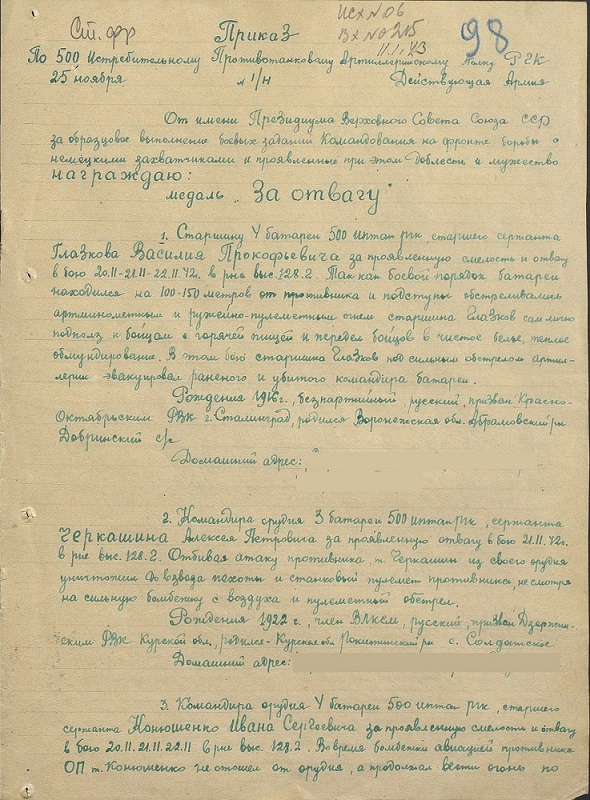 Ст. фр
исх № 06
вх № 215
11.1.43
98
Приказ
По 500 Истребительному Противотанковому Артиллерийскому Полку РГК
25 ноября № 1/н Действующая Армия
От имени Президиума Верховного Совета Союза ССР
за образцовое выполнение боевых заданий Командования на фронте борьбы с
немецкими захватчиками и проявленные при этом доблесть и мужество
награждаю:
медаль „За отвагу"
1. Старшину У батареи 500 иптап ргк, старшего сержанта
Глазкова Василия Прокофьевича за проявленную смелость и отвагу
в бою 20.11-21.11-22.11.42г. в р-не выс. 128.2. Так как боевой порядок батареи
находился на 100-150 метров от противника и подступы обстреливались
артминометным и ружейно-пулеметным огнем старшина Глазков сам лично
подполз к бойцам с горячей пищей и передел бойцов в чистое белье, теплое
обмундирование. В этом бою старшина Глазков под сильным обстрелом артил-
лерии эвакуировал раненого и убитого командира батареи.
Рождения 1916г., безпартийный, русский, призван Красно-
Октябрьским РВК г. Сталинград, родился Воронежская обл. Абрамовский р-н
Добринский с/с
Домашний адрес:
2. Командира орудия 3 батареи 500 иптап ргк, сержанта
Черкашина Алексея Петровича за проявленную отвагу в бою 21.11.42г.
в р-не выс. 128.2. Отбивая атаку противника т. Черкашин из своего орудия
уничтожил до взвода пехоты и станковый пулемет противника, не смотря
на сильную бомбежку с воздуха и пулеметный обстрел.
Рождения 1922г., член ВЛКСМ, русский, призван Дзержин-
ским РВК Курской обл., родился-Курская обл Ракитинский р-н с. Солдатское
Домашний адрес:
3. Командира орудия У батареи 500 иптап ргк, старшего
сержанта Конюшенко Ивана Сергеевича за проявленную смелость и отвагу
в бою 20.11.21.11.22.11 в р-не выс. 128.2. Вовремя бомбежки авиацией противника
ОП т. Конюшенко не отошел от орудия, а продолжал вести огонь по